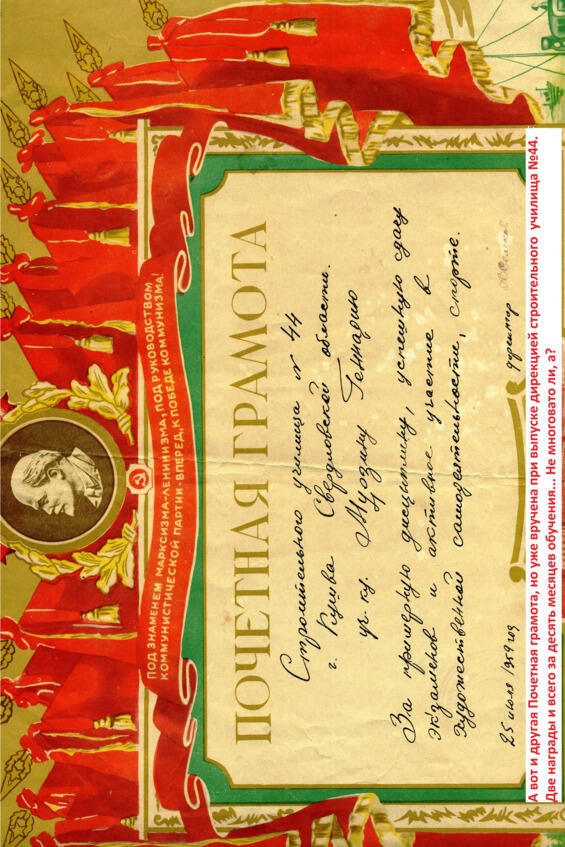 ПОД ЗНАМЕНЕМ МАРКСИЗМА-ЛЕНИНИЗМА, ПОД РУКОВОДСТВОМ
КОММУНИСТИЧЕСКОЙ ПАРТИИ - ВПЕРЕД, К ПОБЕДЕ КОММУНИЗМА!
ПОЧЕТНАЯ ГРАМОТА
Строительного училища № 44
г. Кушва Свердловской области.
уч-ку Мусину Геннадию
За примерную дисциплину, успешную сдачу
экзаменов и активное участие в
художественной самодеятельности, спорте.
25 июля 1959 год директор
А вот и другая Почетная грамота, но уже вручена при выпуске дирекцией строительного училища №44.
Две награды и всего за десять месяцев обучения... Не многовато ли, а?